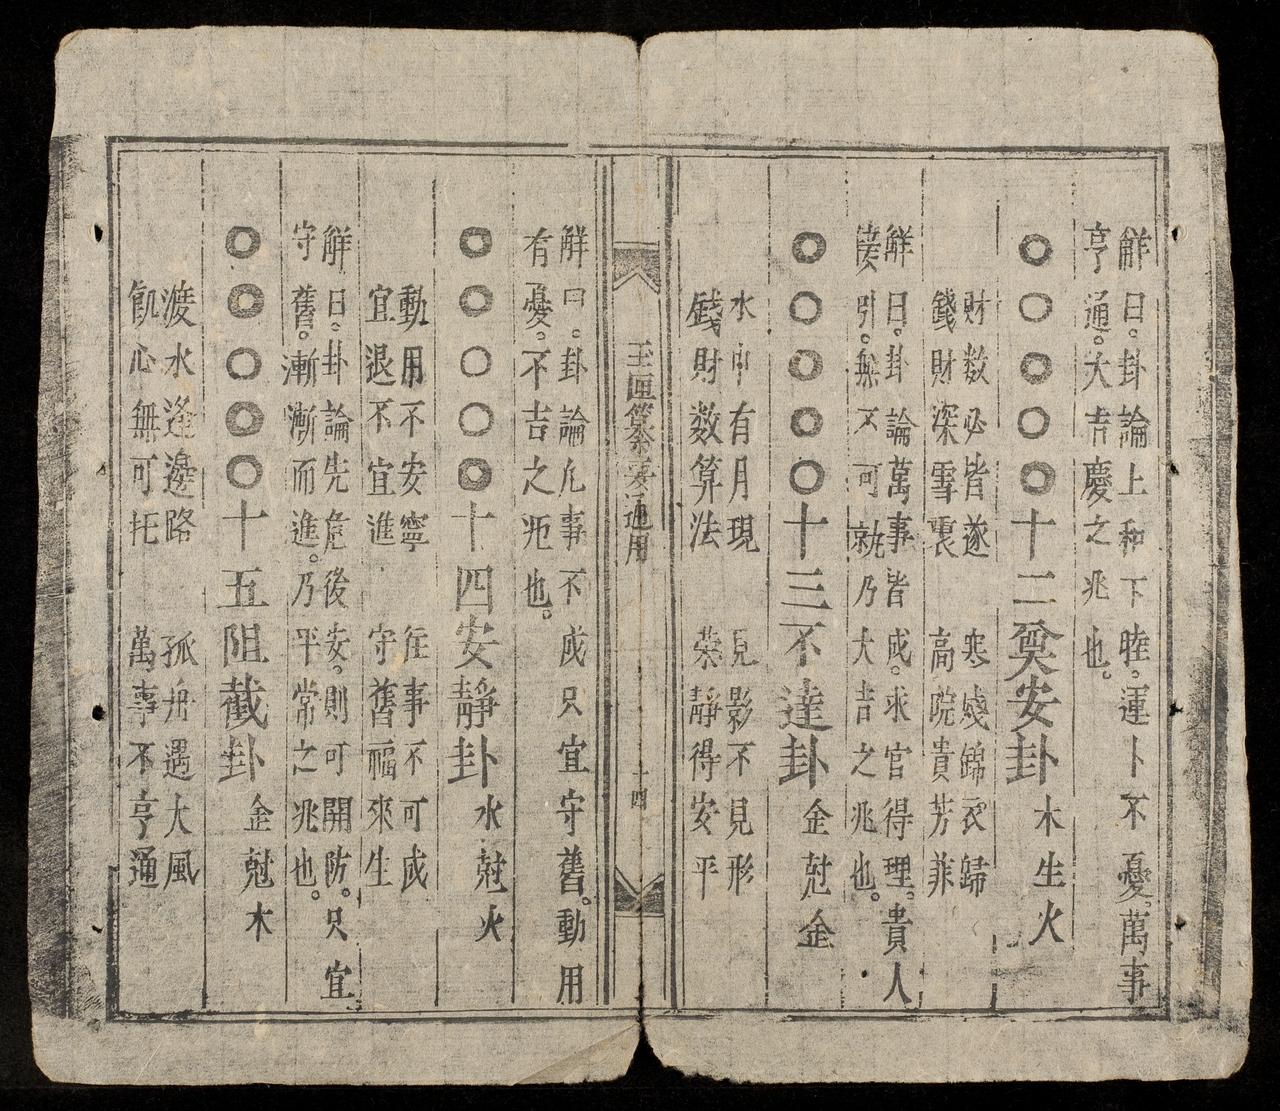 解曰。卦論上和下睦。運卜不憂。萬事
亨通。大吉慶之兆也。
十二奠安卦 木生火
財数必皆遂 寒窓錦衣歸
錢財深雪裏 高院貴芳菲
解曰。卦論萬事皆成。求官得理。貴人
接引。無不可就乃大吉之兆也。
十三不達卦 金尅金
水中有月現 見影不見形
錢財数算法 榮靜得安平
玉匣篹要通用
十四
解曰。卦論凢事不成只宜守舊。動用
有憂。不吉之兆也。
十四安靜卦 水尅火
動用不安寧 往事不可成
宜退不宜進 守舊福來生
解曰。卦論先危後安。則可開防。只宜
守舊。漸漸而進。乃平常之兆也。
十五阻截卦 金尅木
渡水逢邊路 孤舟遇大風
飢心無可托 萬事不亨通